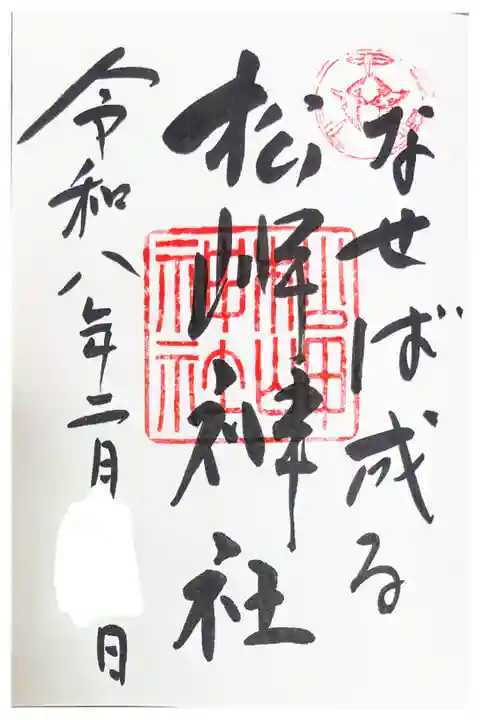 なせば成る
松岬神社
令和八年二月 日
松岬
神社